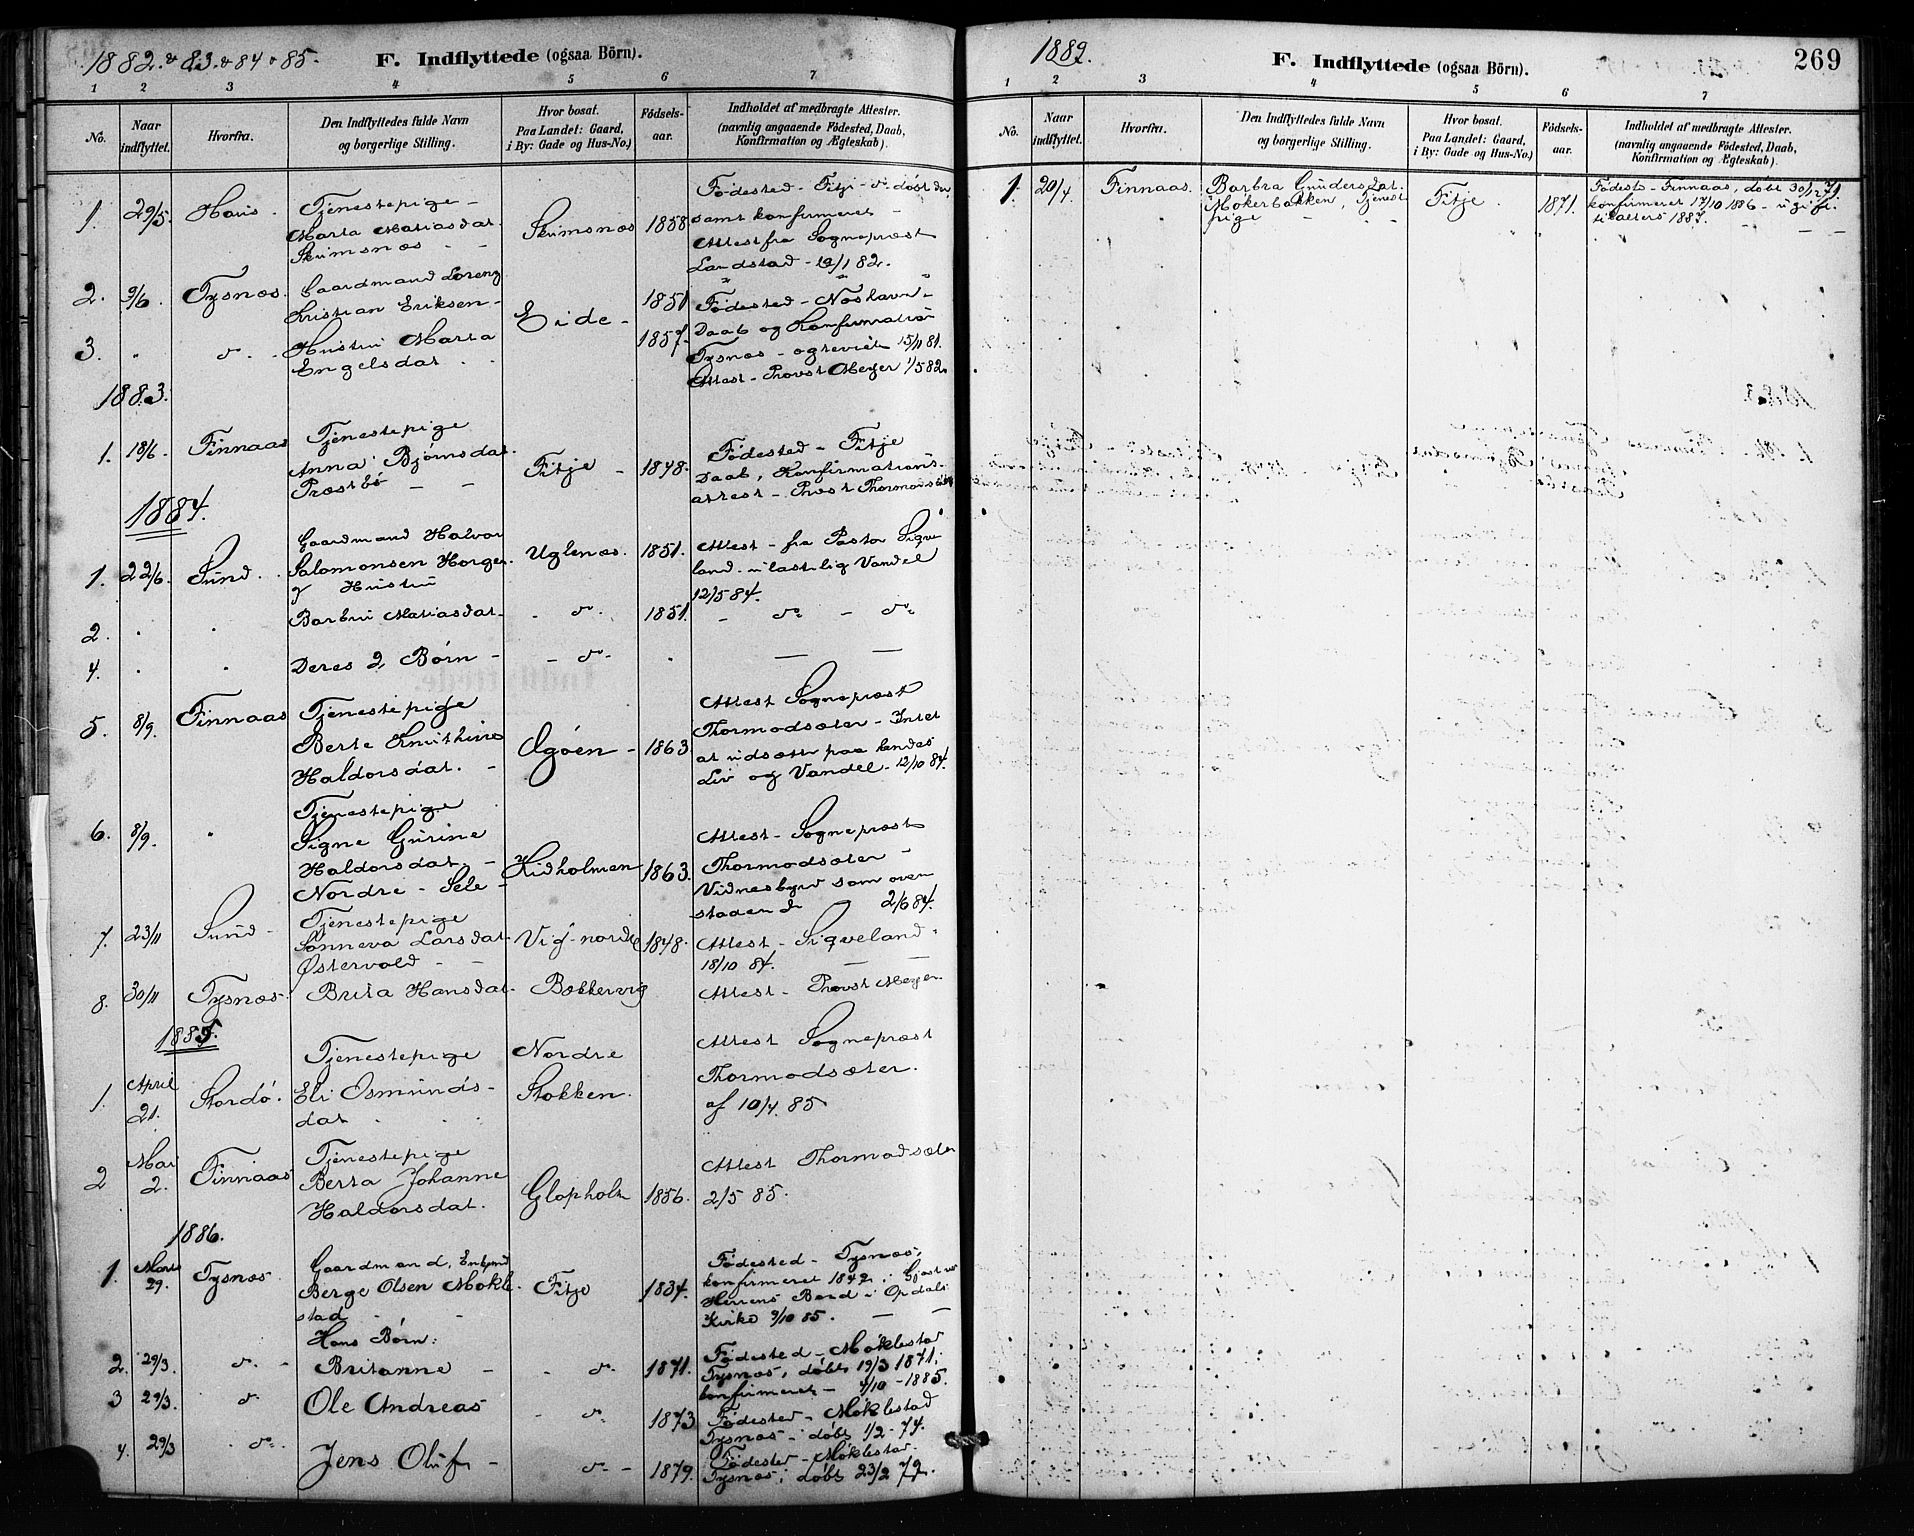 1882 & 83 & 84 & 85.
F. Indflyttede (ogsaa Börn).
1 2 3 4 5 6 7
No.
Naar indflyttet.
Hvorfra.
Den Indflyttedes fulde Navn og borgerlige Stilling.
Hvor bosat. Paa Landet: Gaard, i By: Gade og Hus-No.)
Fødselsaar.
Indholdet af medbragte Attester. (navnlig angaaende Fødested, Daab, Konfirmation og Ægteskab).
1. 29/5. Haus. Tjenestepige - Skimsnæs 1858 Fødested - Fitje - d. døbt der
Marta Matiasdat. samt konfirmeret -
Skimsnæs - - Attest fra Sognepræst
Landstad - 12/1 82.
2. 9/6. Tysnæs. Gaardmand Lorenz Eide - 1851 Fødested - Noshavn -
Kristian Eriksen - Daab og Konfirmation
3. " d. Hustru Marta 1857. Tysnæs - og vieet 15/11 81.
Engelsdat. Attest - Provst Meyer 1/5 82.
1883.
1. 18/6. Finnaas Tjenestepige Fitje - 1848. Fødested - Fitje
Anna Bjørnsdat. Daab, Konfirmations-
Præstbø - - attest - Prvst Thormodsæter
1884.
1. 22/6. Sund. Gaardmand Halvor Uglenæs. 1851. Attest - fra Pastor Sigve
Salomonsen Horge land - ulastelig Vandel
& Hustru 12/5 84.
2. . . Barbru Matiasdat - - d. 1851. - do - do
4. . . Deres 2 Børn - - d. - . — —
5. 8/9. Finnaas Tjenestepige Øgøen - 1863 Attest Sognepræst
Berte Knuthine Thormodsæter - Intet
Haldorsdat. - at udsætte paa hendes
Liv og Vandel - 12/10 84.
6. 8/9. " Tjenestepige
Signe Gurine Attest - Sognepræst
Haldorsdat. - Kidholmen 1863. Thormodsæter -
Nordre - Sele - Vidnesbyrd som oven
staaende 2/6 84.
7. 23/11 Sund - Tjenestepige
Sønneva Larsdat. Vig-nordre 1848. Attest - Sigveland -
Østervold - - 18/10 84. — —
8. 30/11 Tysnæs. Brita Hansdat. Bækkervig Attest - Provst Meyer.
1885.
1. April 21. Stordö. Tjenestepige Nordre Attest Sognepræst
Eli Osmunds- Stokken. Thormodsæter.
dat . . af 10/4. 85
2 Mai 2. Finnaas Tjenestepige Attest Thormodsæter
Berta Johanne Glopholm 1856. 2/5 85.
Haldorsdat.
1886.
1. Marts 29. Tysnæs. Gaardmand, Enkemd Fødested - Tysnæs,
Berge Olsen Møkle- Fitje 1834. konfirmeret 1849
stad Herrens Bord i Opdals
Kirke 9/10 85. — —
Hans Børn:
2. 29/3. d. - Britanne - - d. 1871. Fødested - Møklestad
Tysnæs, døbt 19/3 1871;
konfirmeret - 4/10 - 1885.
3 29/3. d Ole Andreas - d. - 1873 Fødested - Møklestad
Tysnæs - døbt 1/2 - 74.
4. 29/3 . d. . Jens Oluf - d. - 1879. Fødested - Møklestad.
Tysnæs; døbt 23/2 79.
1889.
F. Indflyttede (ogsaa Börn).
269
1 2 3 4 5 6 7
No.
Naar indflyttet.
Hvorfra.
Den Indflyttedes fulde Navn og borgerlige Stilling.
Hvor bosat. Paa Landet: Gaard, i By: Gade og Hus-No.)
Fødselsaar.
Indholdet af medbragte Attester. (navnlig angaaende Fødested, Daab, Konfirmation og Ægteskab).
1. 20/4 Finnaas. Barbra Gundersdat. Fitje. 1871. Fødested - Finnaas, døbt 30/1 71
Mokerbakken, Tjenest konfirmeret 17/10 1886 - ugift
pige - - til alters 1887. - -